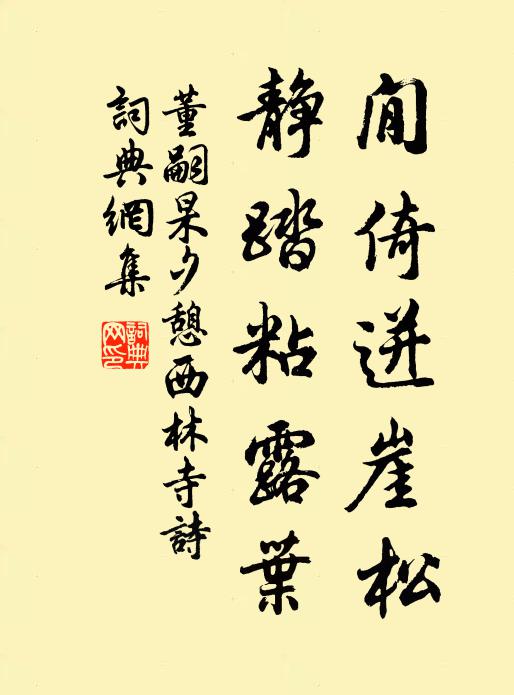 閒倚迸崖松
静踏粘露葉
董嗣杲夕憩西林寺詩
詞典網集
詞典網印